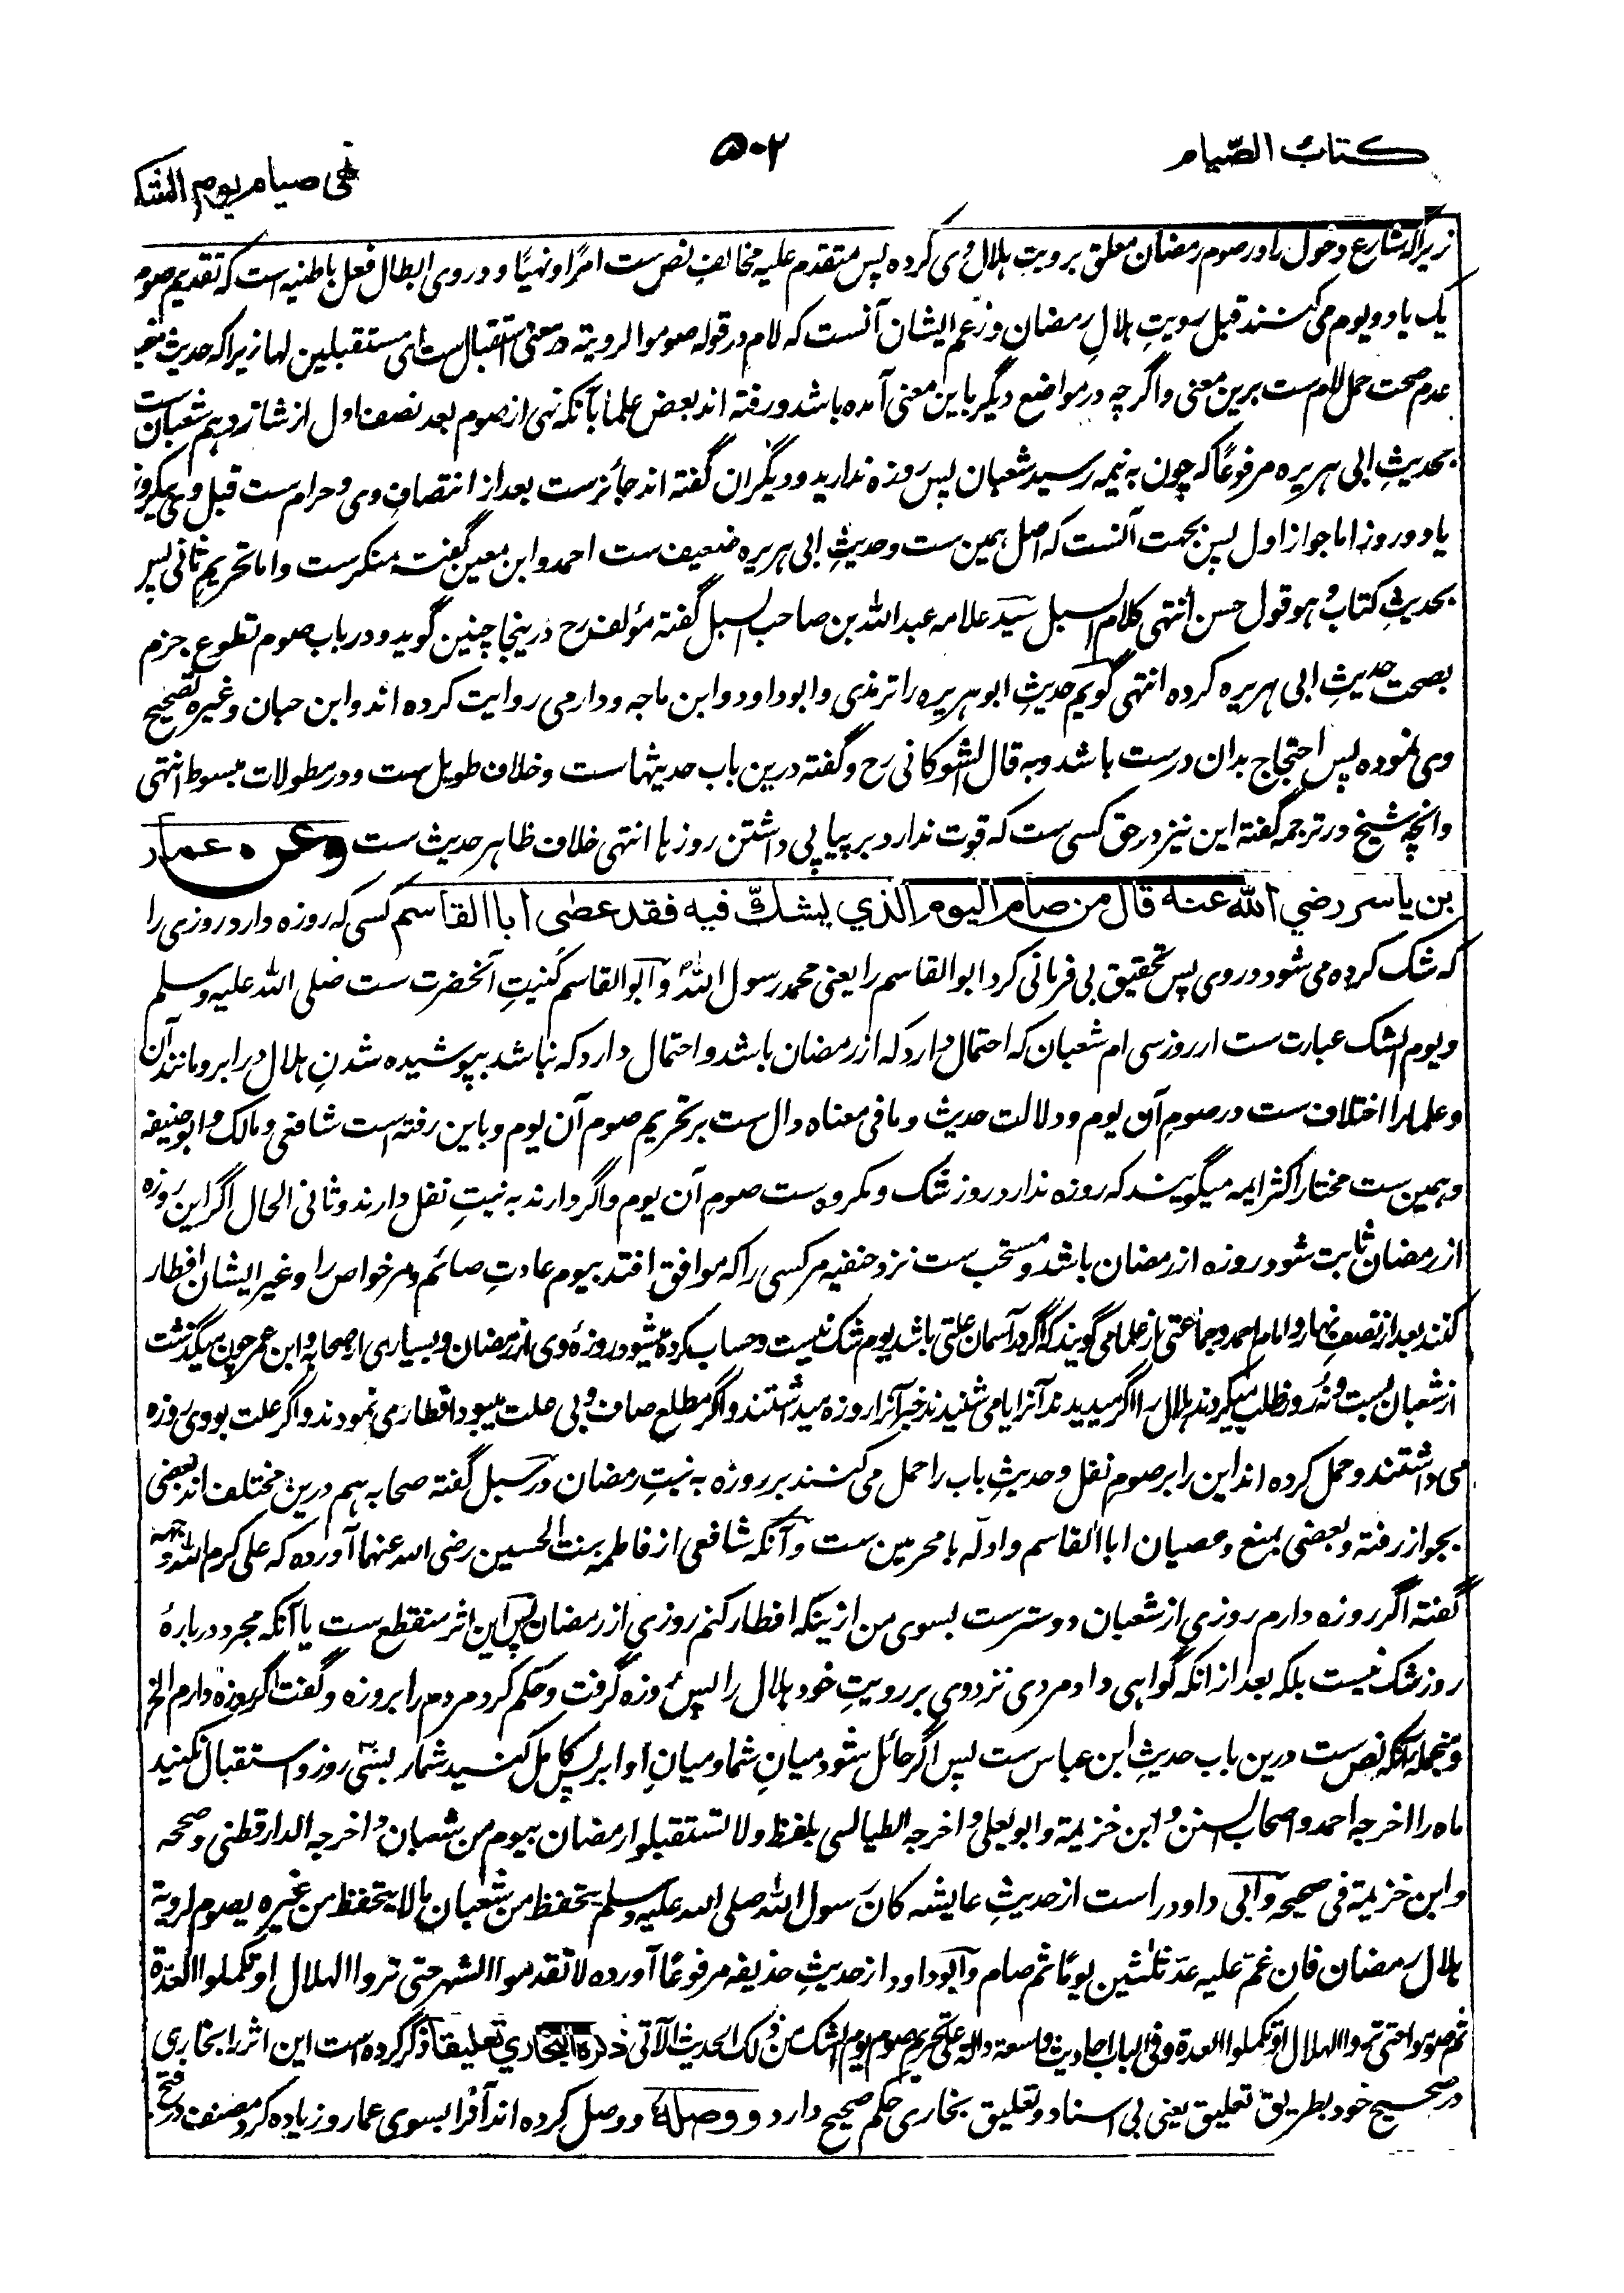 كتاب الصّيام
۵۰۲
نهى صيام يوم الشك
زیراکه شارع دخول را در صوم رمضان معلق برویتِ هلال وی کرده پس متقدم علیه مخالفِ نص ست امرًا و نهیًا و در وی ابطال فعل باطنیه است که تقدیم صوم
یک یا دو یوم می کنند قبل رویتِ هلالِ رمضان و زعم ایشان آنست که لام در قوله صوموا لرویته در معنی استقبال ست ای مستقبلین لها زیراکه حدیث مفید
عدم صحت حمل لام ست برین معنی و اگر چه در مواضع دیگر باین معنی آمده باشد و رفته اند بعض علما بآنکه نهی از صوم بعد نصف اول از شانزدهم شعبان ست
بحدیثِ ابی هریره مرفوعًا که چون به نیمه رسید شعبان پس روزه ندارید و دیگران گفته اند جائزست بعد از انتصافِ وی و حرام ست قبل وی بیکروز
یا دو روز اما جواز اول پس بجهت آنست که اصل همین ست و حدیثِ ابی هریره ضعیف ست احمد و ابن معین گفته منکرست و اما تحریمِ ثانی پس
بحدیثِ کتاب و هو قول حسن انتهی کلام السبل سید علامه عبدالله بن صاحب السبل گفته مؤلف رح درینجا چنین گوید و در باب صوم تطوع جزم
بصحت حدیثِ ابی هریره کرده انتهی گویم حدیثِ ابو هریره را ترمذی و ابو داود و ابن ماجه و دارمی روایت کرده اند و ابن حبان و غیره تصحیح
وی نموده پس احتجاج بدان درست باشد و به قال الشوکانی رح و گفته درین باب حدیثهاست و خلاف طویل ست و در مطولات مبسوط انتهی
و انچه شیخ در ترجمه گفته این نیز در حق کسی ست که قوت ندارد بر پیاپی داشتن روزها انتهی خلاف ظاهر حدیث ست وعن عمار
بن ياسر رضي الله عنه قال من صام اليوم الذي يشكّ فيه فقد عصى أبا القاسم کسی که روزه دارد روزی را
که شک کرده می شود در وی پس تحقیق بی فرمانی کرد ابو القاسم را یعنی محمد رسول الله و ابو القاسم کنیتِ آنحضرت ست صلی الله علیه و سلم
و یوم الشک عبارت ست از روز سی ام شعبان که احتمال دارد که از رمضان باشد و احتمال دارد که نباشد بپوشیده شدنِ هلال در ابر و مانند آن
و علما را اختلاف ست در صومِ آن یوم و دلالت حدیث و ما فی معناه دال ست بر تحریم صوم آن یوم و باین رفته است شافعی و مالک و ابو حنیفه
و همین ست مختار اکثر ایمه میگویند که روزه ندارد روز شک و مکروه ست صومِ آن یوم و اگر دارند به نیتِ نفل دارند و ثانی الحال اگر این روزه
از رمضان ثابت شود روزه از رمضان باشد و مستحب ست نزد حنفیه مر کسی را که موافق افتد بیوم عادتِ صائم و مر خواص را و غیر ایشان افطار
کنند بعد از نصفِ نهار و امام احمد و جماعتی از علما می گویند که اگر در آسمان علتی باشد یوم شک نیست و حساب کرده میشود روزۀ وی از رمضان و بسیاری از صحابه و ابن عمر چون میگذشت
از شعبان بست و نُه روز طلب میکردند هلال را اگر میدیدند آنرا یا می شنیدند خبر آنرا روزه میداشتند و اگر مطلع صاف و بی علت میبود افطار می نمودند و اگر علت بودی روزه
می داشتند و حمل کرده اند این را بر صومِ نفل و حدیثِ باب را حمل می کنند بر روزه به نیتِ رمضان در سبل گفته صحابه هم درین مختلف اند بعضی
بجواز رفته و بعضی بمنع و عصیان ابا القاسم و ادلّه با محرمین ست و آنکه شافعی از فاطمه بنت الحسین رضی الله عنهما آورده که علی کرم الله وجهه
گفته اگر روزه دارم روزی از شعبان دوسترست بسوی من ازینکه افطار کنم روزی از رمضان پس این اثر منقطع ست یا آنکه مجرد در بارۀ
روز شک نیست بلکه بعد از انکه گواهی داد مردی نزد وی بر رویتِ خود هلال را پس روزه گرفت و حکم کرد مردم را بروزه و گفت اگر روزه دارم الخ
و منجمله آنکه نص ست درین باب حدیثِ ابن عباس ست پس اگر حائل شود میانِ شما و میانِ او ابر پس کامل کنید شمار بسی روز و استقبال نکنید
ماه را اخرجه احمد و اصحاب السنن و ابن خزیمة و ابو یعلی و اخرجه الطیالسی بلفظ ولا تستقبلوا رمضان بیوم من شعبان و اخرجه الدارقطنی و صححه
و ابن خزیمة فی صحیحه و ابی داود راست از حدیثِ عایشه کان رسول الله صلی الله علیه و سلم یتحفظ من شعبان مالا یتحفظ من غیره یصوم لرویة
هلال رمضان فان غمّ علیه عدّ ثلثین یومًا ثم صام و ابو داود از حدیثِ حذیفه مرفوعًا آورده لا تقدموا الشهر حتی تروا الهلال او تکملوا العدّة
ثم صوموا حتی تروا الهلال او تکملوا العدة و فی الباب احادیث واسعة دالة علی تحریم صوم یوم الشک من ذلک الحدیث الآتی ذكره البخاري تعليقا ذکر کرده است این اثر را بخاری
در صحیح خود بطریق تعلیق یعنی بی اسناد و تعلیق بخاری حکم صحیح دارد ووصله و وصل کرده اند آنرا بسوی عمار و زیاده کرد مصنف در فتح